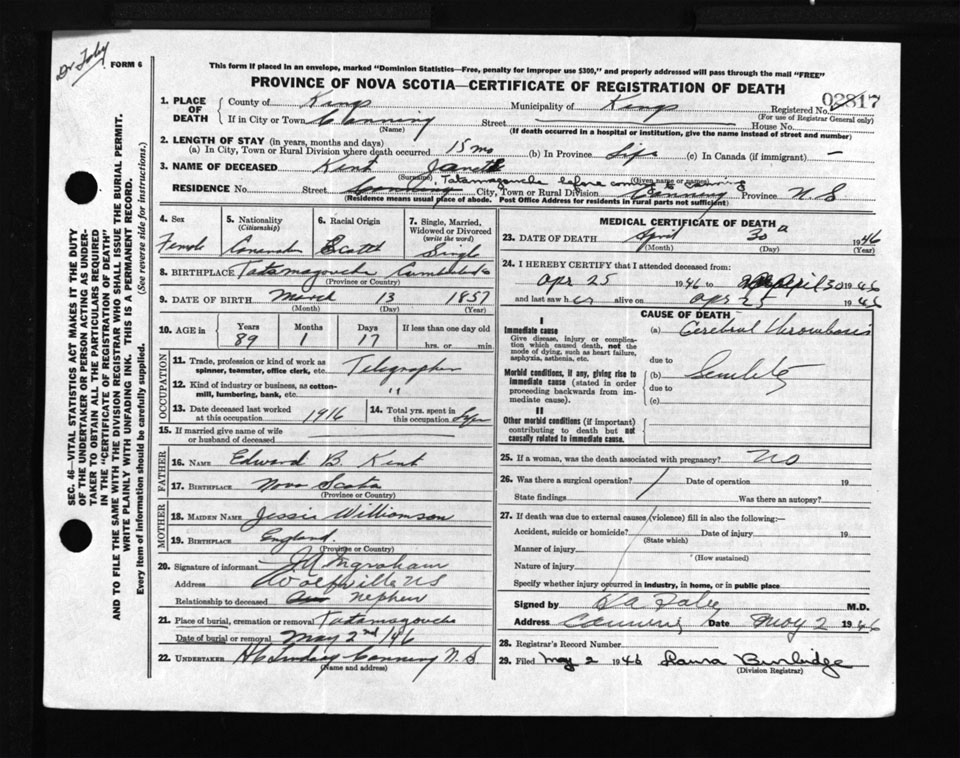 Dr Foley
FORM 6
This form if placed in an envelope, marked "Dominion Statistics—Free, penalty for improper use $300," and properly addressed will pass through the mail "FREE"
PROVINCE OF NOVA SCOTIA—CERTIFICATE OF REGISTRATION OF DEATH
SEC. 46—VITAL STATISTICS ACT MAKES IT THE DUTY
OF THE UNDERTAKER OR PERSON ACTING AS UNDER-
TAKER TO OBTAIN ALL THE PARTICULARS REQUIRED
IN THE "CERTIFICATE OF REGISTRATION OF DEATH"
AND TO FILE THE SAME WITH THE DIVISION REGISTRAR WHO SHALL ISSUE THE BURIAL PERMIT.
WRITE PLAINLY WITH UNFADING INK. THIS IS A PERMANENT RECORD.
Every item of information should be carefully supplied. (See reverse side for instructions.)
1. PLACE OF DEATH
County of Kings Municipality of Kings Registered No. 02817
(For use of Registrar General only)
If in City or Town Canning Street House No.
(Name) (If death occurred in a hospital or institution, give the name instead of street and number)
2. LENGTH OF STAY (in years, months and days)
(a) In City, Town or Rural Division where death occurred 15 mo (b) In Province Life (c) In Canada (if immigrant) —
3. NAME OF DECEASED Kent Janet
(Surname) (Given name or names)
Tatamagouche before coming to Canning
RESIDENCE No. Street Canning City, Town or Rural Division Canning Province N.S
(Residence means usual place of abode. Post Office Address for residents in rural parts not sufficient)
4. Sex Female
5. Nationality (Citizenship) Canadian
6. Racial Origin Scotch
7. Single, Married, Widowed or Divorced (write the word) Single
8. BIRTHPLACE Tatamagouche Cumberland Co
(Province or Country)
9. DATE OF BIRTH March 13 1857
(Month) (Day) (Year)
10. AGE in Years Months Days If less than one day old
89 1 17 hrs. or min.
OCCUPATION
11. Trade, profession or kind of work as spinner, teamster, office clerk, etc. Telegrapher
12. Kind of industry or business, as cotton-mill, lumbering, bank, etc. "
13. Date deceased last worked at this occupation 1916
14. Total yrs. spent in this occupation Life
15. If married give name of wife or husband of deceased
FATHER
16. NAME Edward B. Kent
17. BIRTHPLACE Nova Scotia
(Province or Country)
MOTHER
18. MAIDEN NAME Jessie Williamson
19. BIRTHPLACE England.
(Province or Country)
20. Signature of informant Ingraham
Address Wolfville NS
Relationship to deceased nephew
21. Place of burial, cremation or removal Tatamagouche
Date of burial or removal May 2nd /46
22. UNDERTAKER Canning N.S.
(Name and address)
MEDICAL CERTIFICATE OF DEATH
23. DATE OF DEATH April 30 a 1946
(Month) (Day) (Year)
24. I HEREBY CERTIFY that I attended deceased from:
Apr 25 1946 to April 30 1946
and last saw her alive on Apr 25 1946
CAUSE OF DEATH
I
Immediate cause (a) Cerebral thrombosis
Give disease, injury or complication which caused death, not the mode of dying, such as heart failure, asphyxia, asthenia, etc.
due to
Morbid conditions, if any, giving rise to immediate cause (stated in order proceeding backwards from immediate cause). (b) Senility
due to
(c)
II
Other morbid conditions (if important) contributing to death but not causally related to immediate cause.
25. If a woman, was the death associated with pregnancy? No
26. Was there a surgical operation? Date of operation 19
State findings Was there an autopsy?
27. If death was due to external causes (violence) fill in also the following:—
Accident, suicide or homicide? Date of injury 19
(State which)
Manner of injury
(How sustained)
Nature of injury
Specify whether injury occurred in industry, in home, or in public place
Signed by M.D.
Address Canning Date May 2 1946
28. Registrar's Record Number
29. Filed May 2 1946 Laura Burbidge
(Division Registrar)